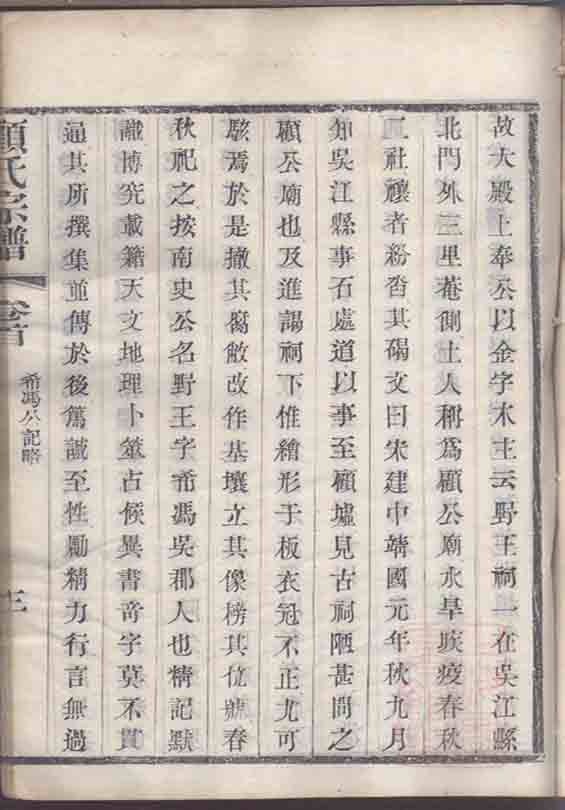 故大殿上奉公以金字木主云野王祠一在吳江縣
北門外三里菴側土人稱爲顧公廟水旱疾疫春秋
二社禳者紛沓其碣文曰宋建中靖國元年秋九月
知吳江縣事石處道以事至顧墟見古祠陋甚問之
顧公廟也及進謁祠下惟繪形于板衣冠不正尤可
駭焉於是撤其腐敝改作基壤立其像榜其位號春
秋祀之按南史公名野王字希馮吳郡人也精記默
識博究載籍天文地理卜筮占候異書奇字莫不貫
通其所撰集並傳於後篤誠至性勵精力行言無過
顧氏宗譜
卷首
希馮公記略